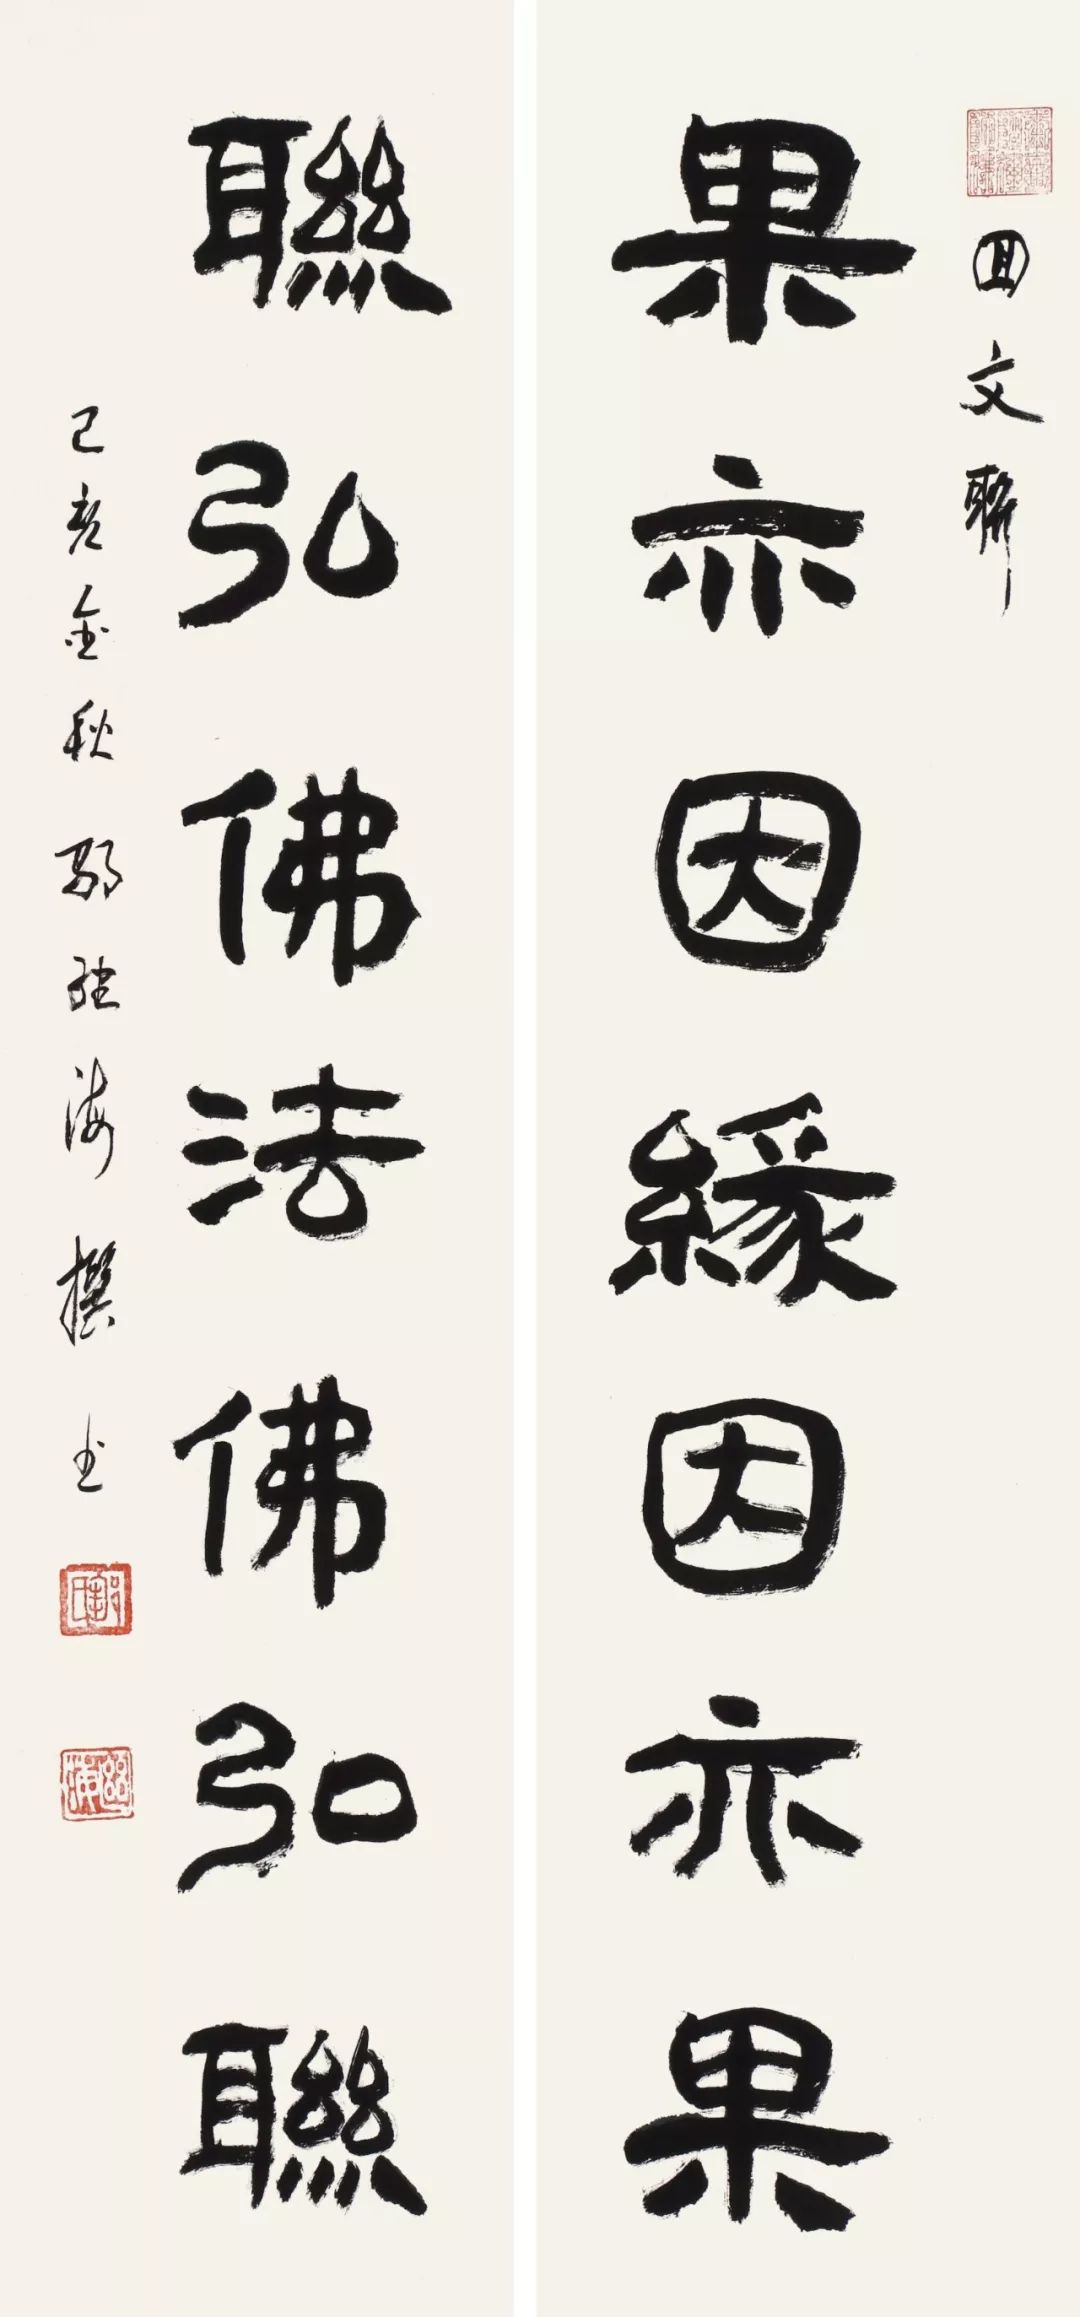 回文聯
果亦因緣因亦果
聯弘佛法佛弘聯
己亥金秋鄒德海撰书